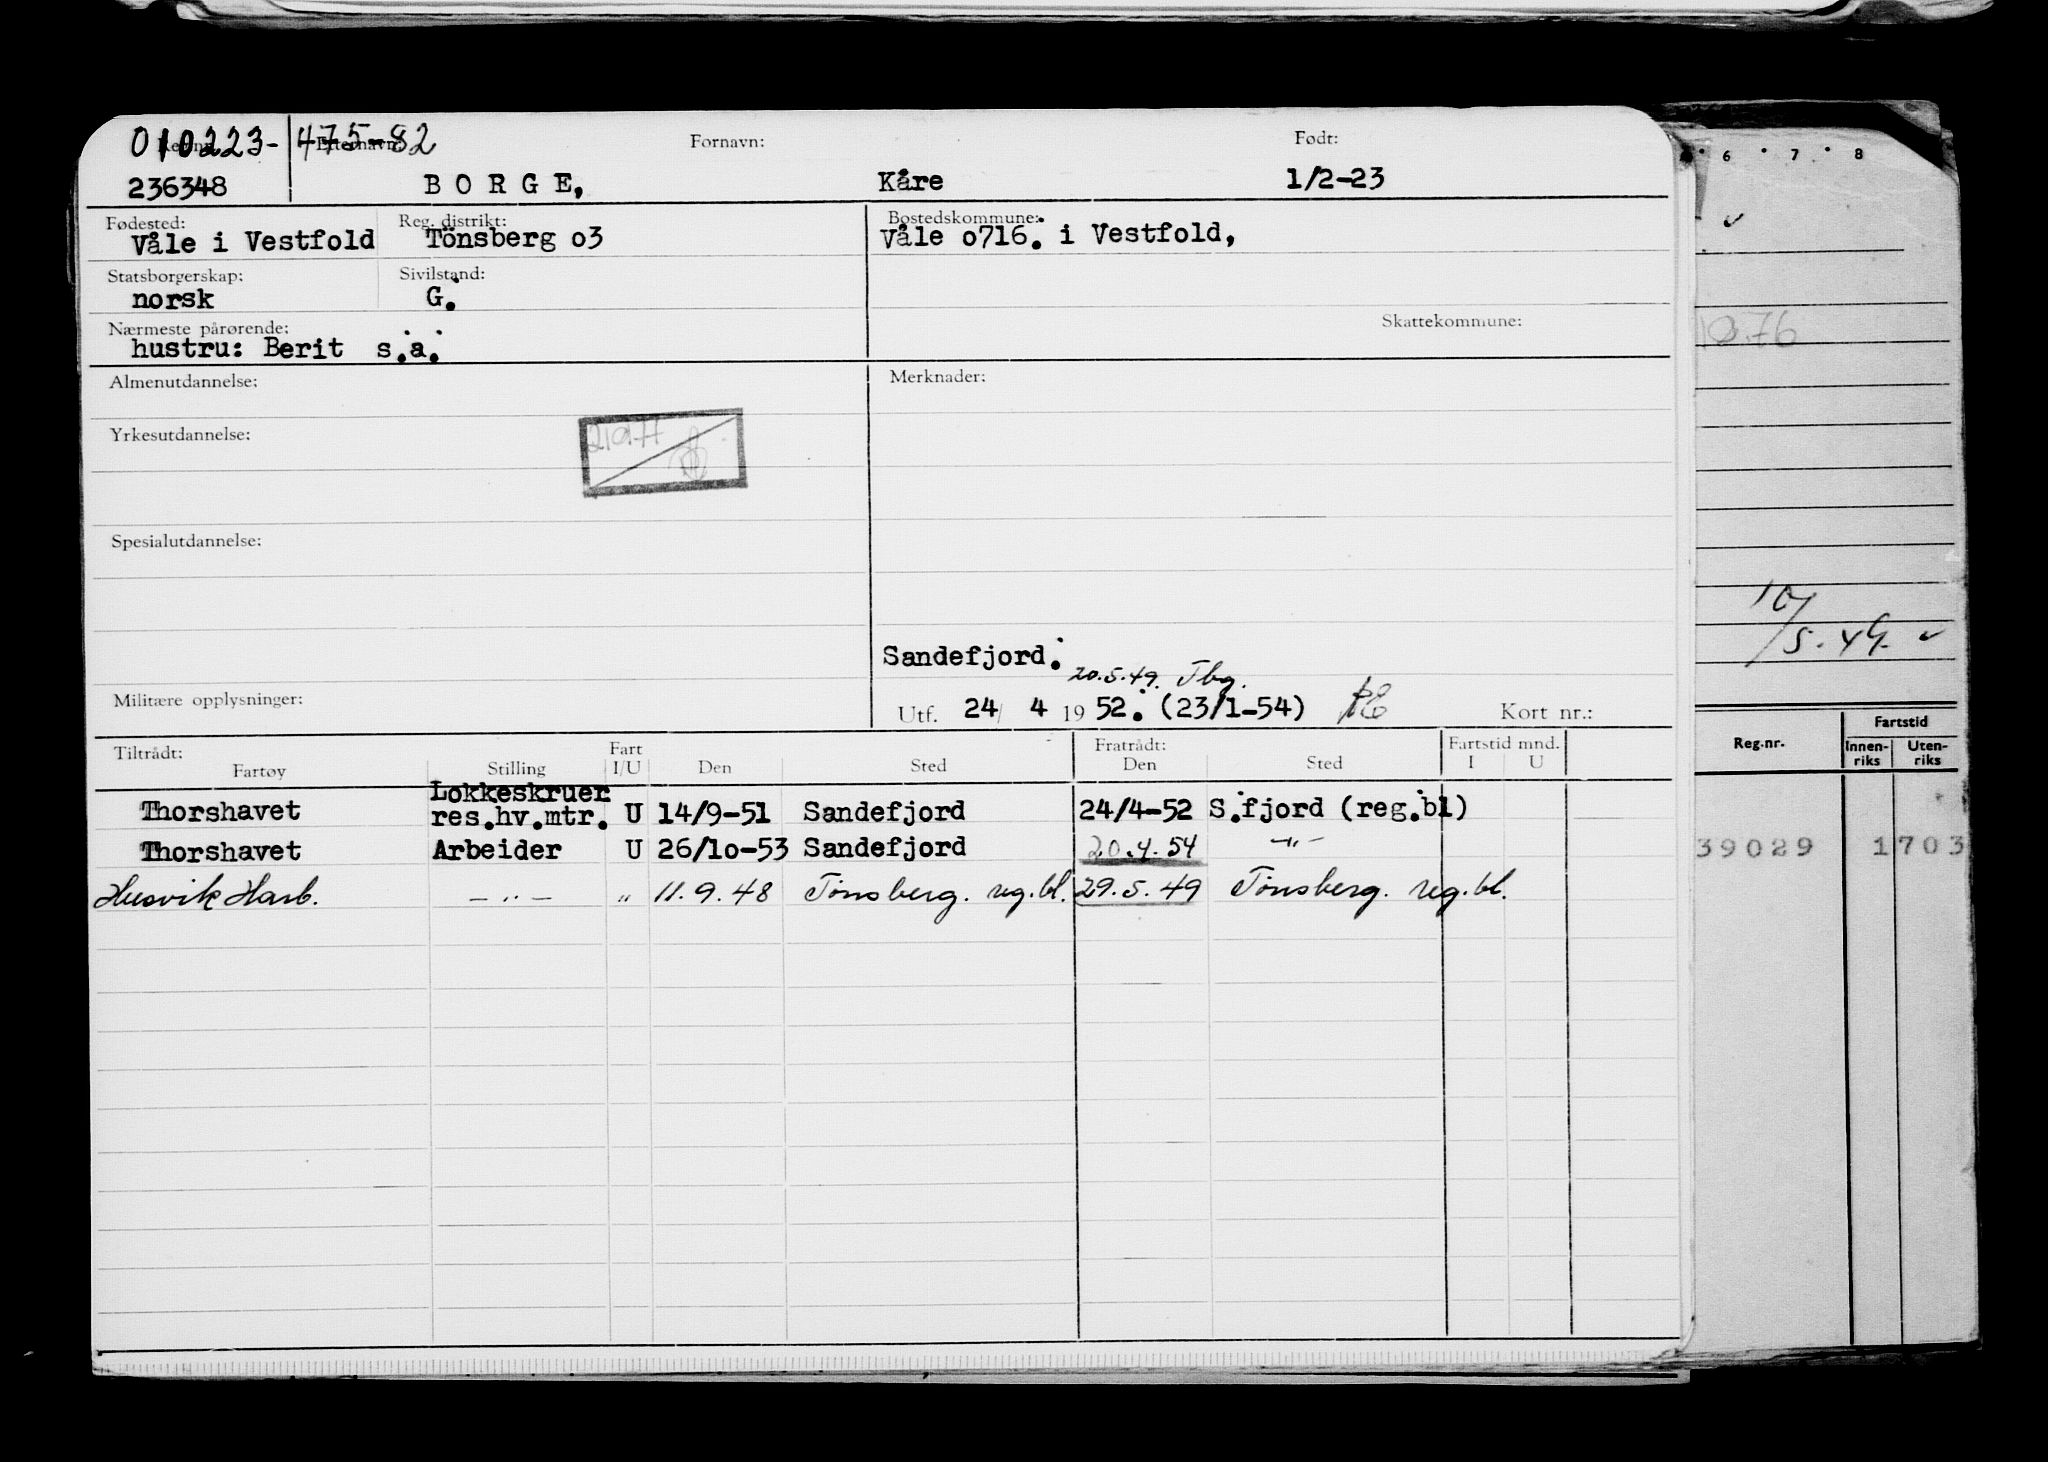 010223- 475-82
Reg.nr.: Etternavn: Fornavn: Født:
236348 BORGE, Kåre 1/2-23
Fødested: Reg. distrikt: Bostedskommune:
Våle i Vestfold Tönsberg o3 Våle o716. i Vestfold,
Statsborgerskap: Sivilstand:
norsk G.
Nærmeste pårørende: Skattekommune:
hustru: Berit s.a.
Almenutdannelse: Merknader:
Yrkesutdannelse:
Spesialutdannelse:
Sandefjord.
20.5.49. Tbg.
Militære opplysninger: Utf. 24/ 4 1952. (23/1-54) Kort nr.:
Tiltrådt: Fart Fratrådt: Fartstid mnd.
Fartøy Stilling I/U Den Sted Den Sted I U
Lokkeskruer
Thorshavet res.hv.mtr. U 14/9-51 Sandefjord 24/4-52 S.fjord (reg.bl)
Thorshavet Arbeider U 26/1o-53 Sandefjord 20.4.54 -"-
Husvik Harb. -"- " 11.9.48 Tønsberg. reg.bl. 29.5.49 Tønsberg. reg.bl.
6 7 8
1976
10/
5.49.
Reg.nr. Fartstid
Innen-riks Uten-riks
39029 1703